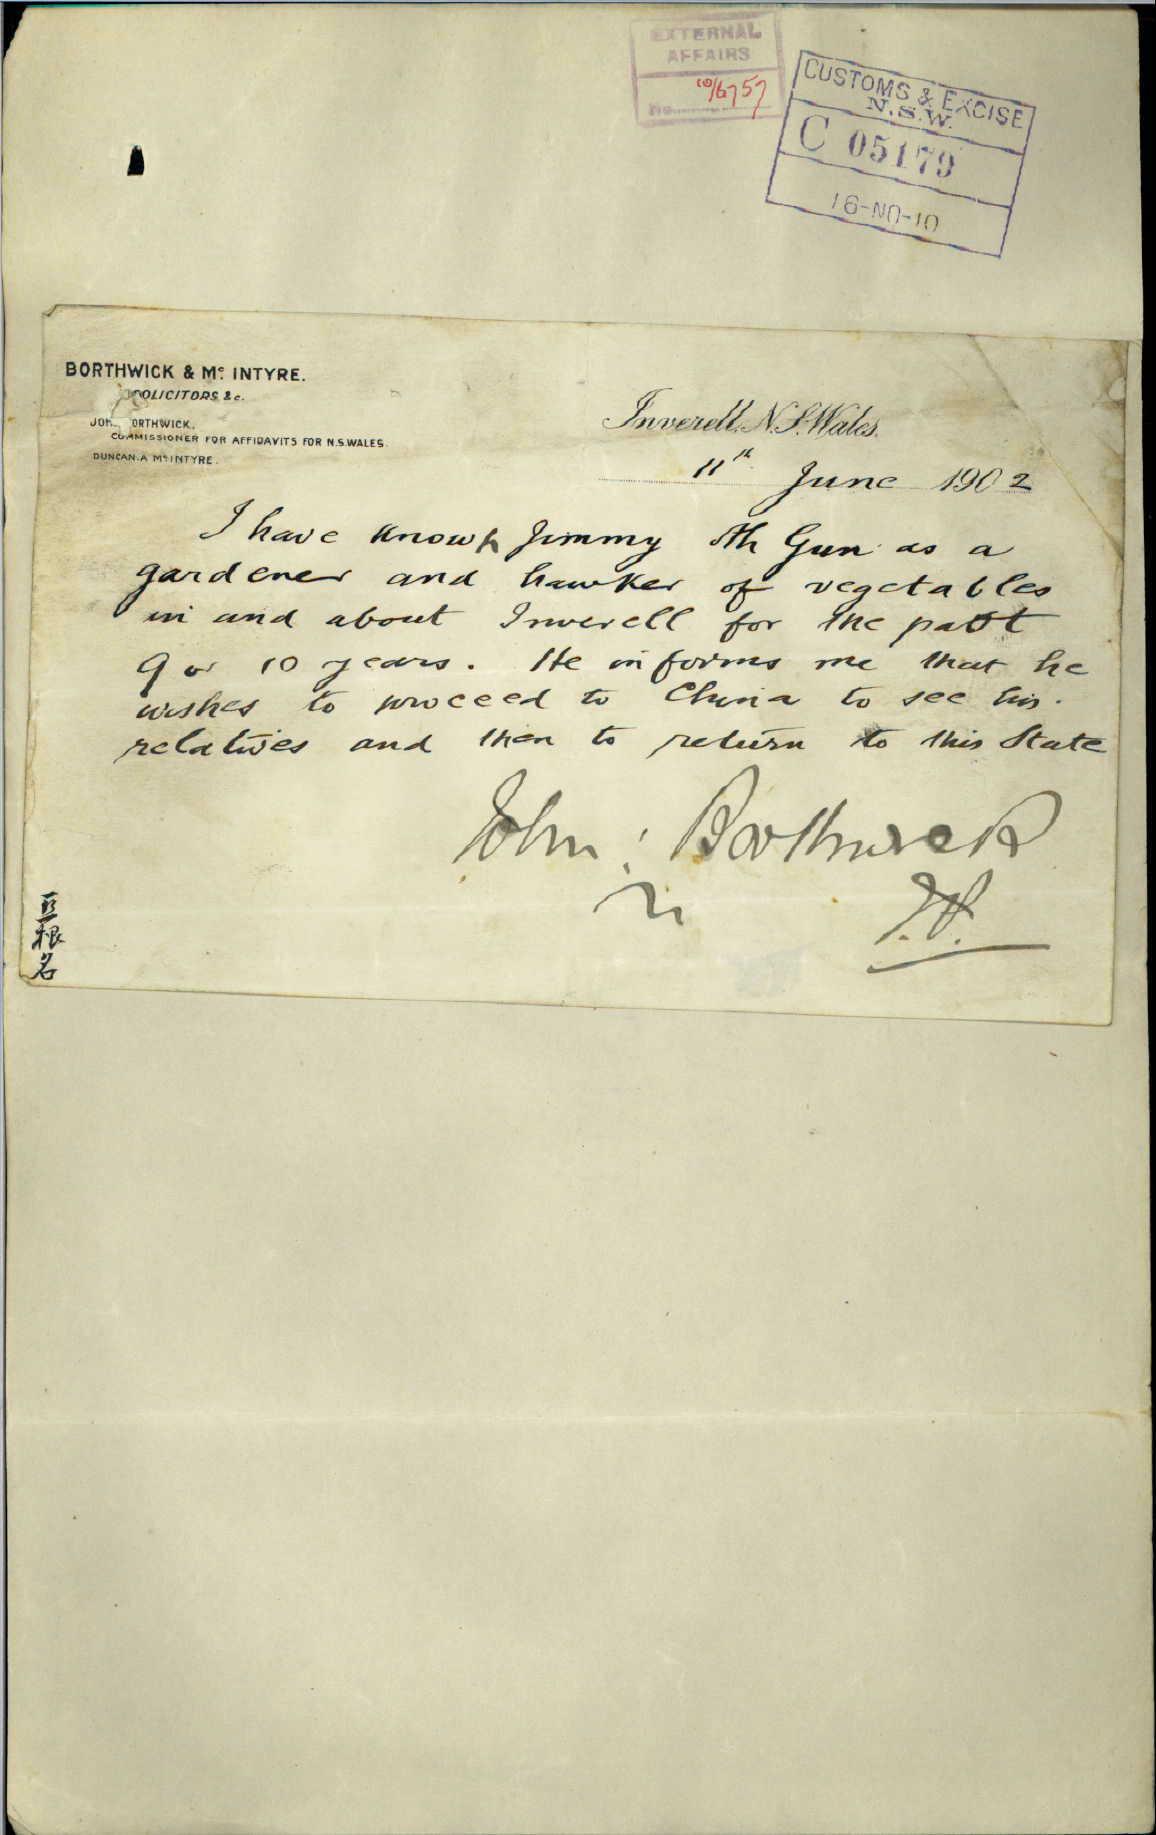 EXTERNAL
AFFAIRS
No. 10/6757
CUSTOMS & EXCISE
N.S.W.
C 05179
16-NO-10
BORTHWICK & Mc INTYRE.
SOLICITORS &c.
JOHN BORTHWICK.
COMMISSIONER FOR AFFIDAVITS FOR N.S.WALES.
DUNCAN. A McINTYRE.
Inverell. N. S. Wales.
11th June 1902
I have known Jimmy Ah Gun as a
gardener and hawker of vegetables
in and about Inverell for the past
9 or 10 years. He informs me that he
wishes to proceed to China to see his
relatives and then to return to this State
John Borthwick
J.P.
根名